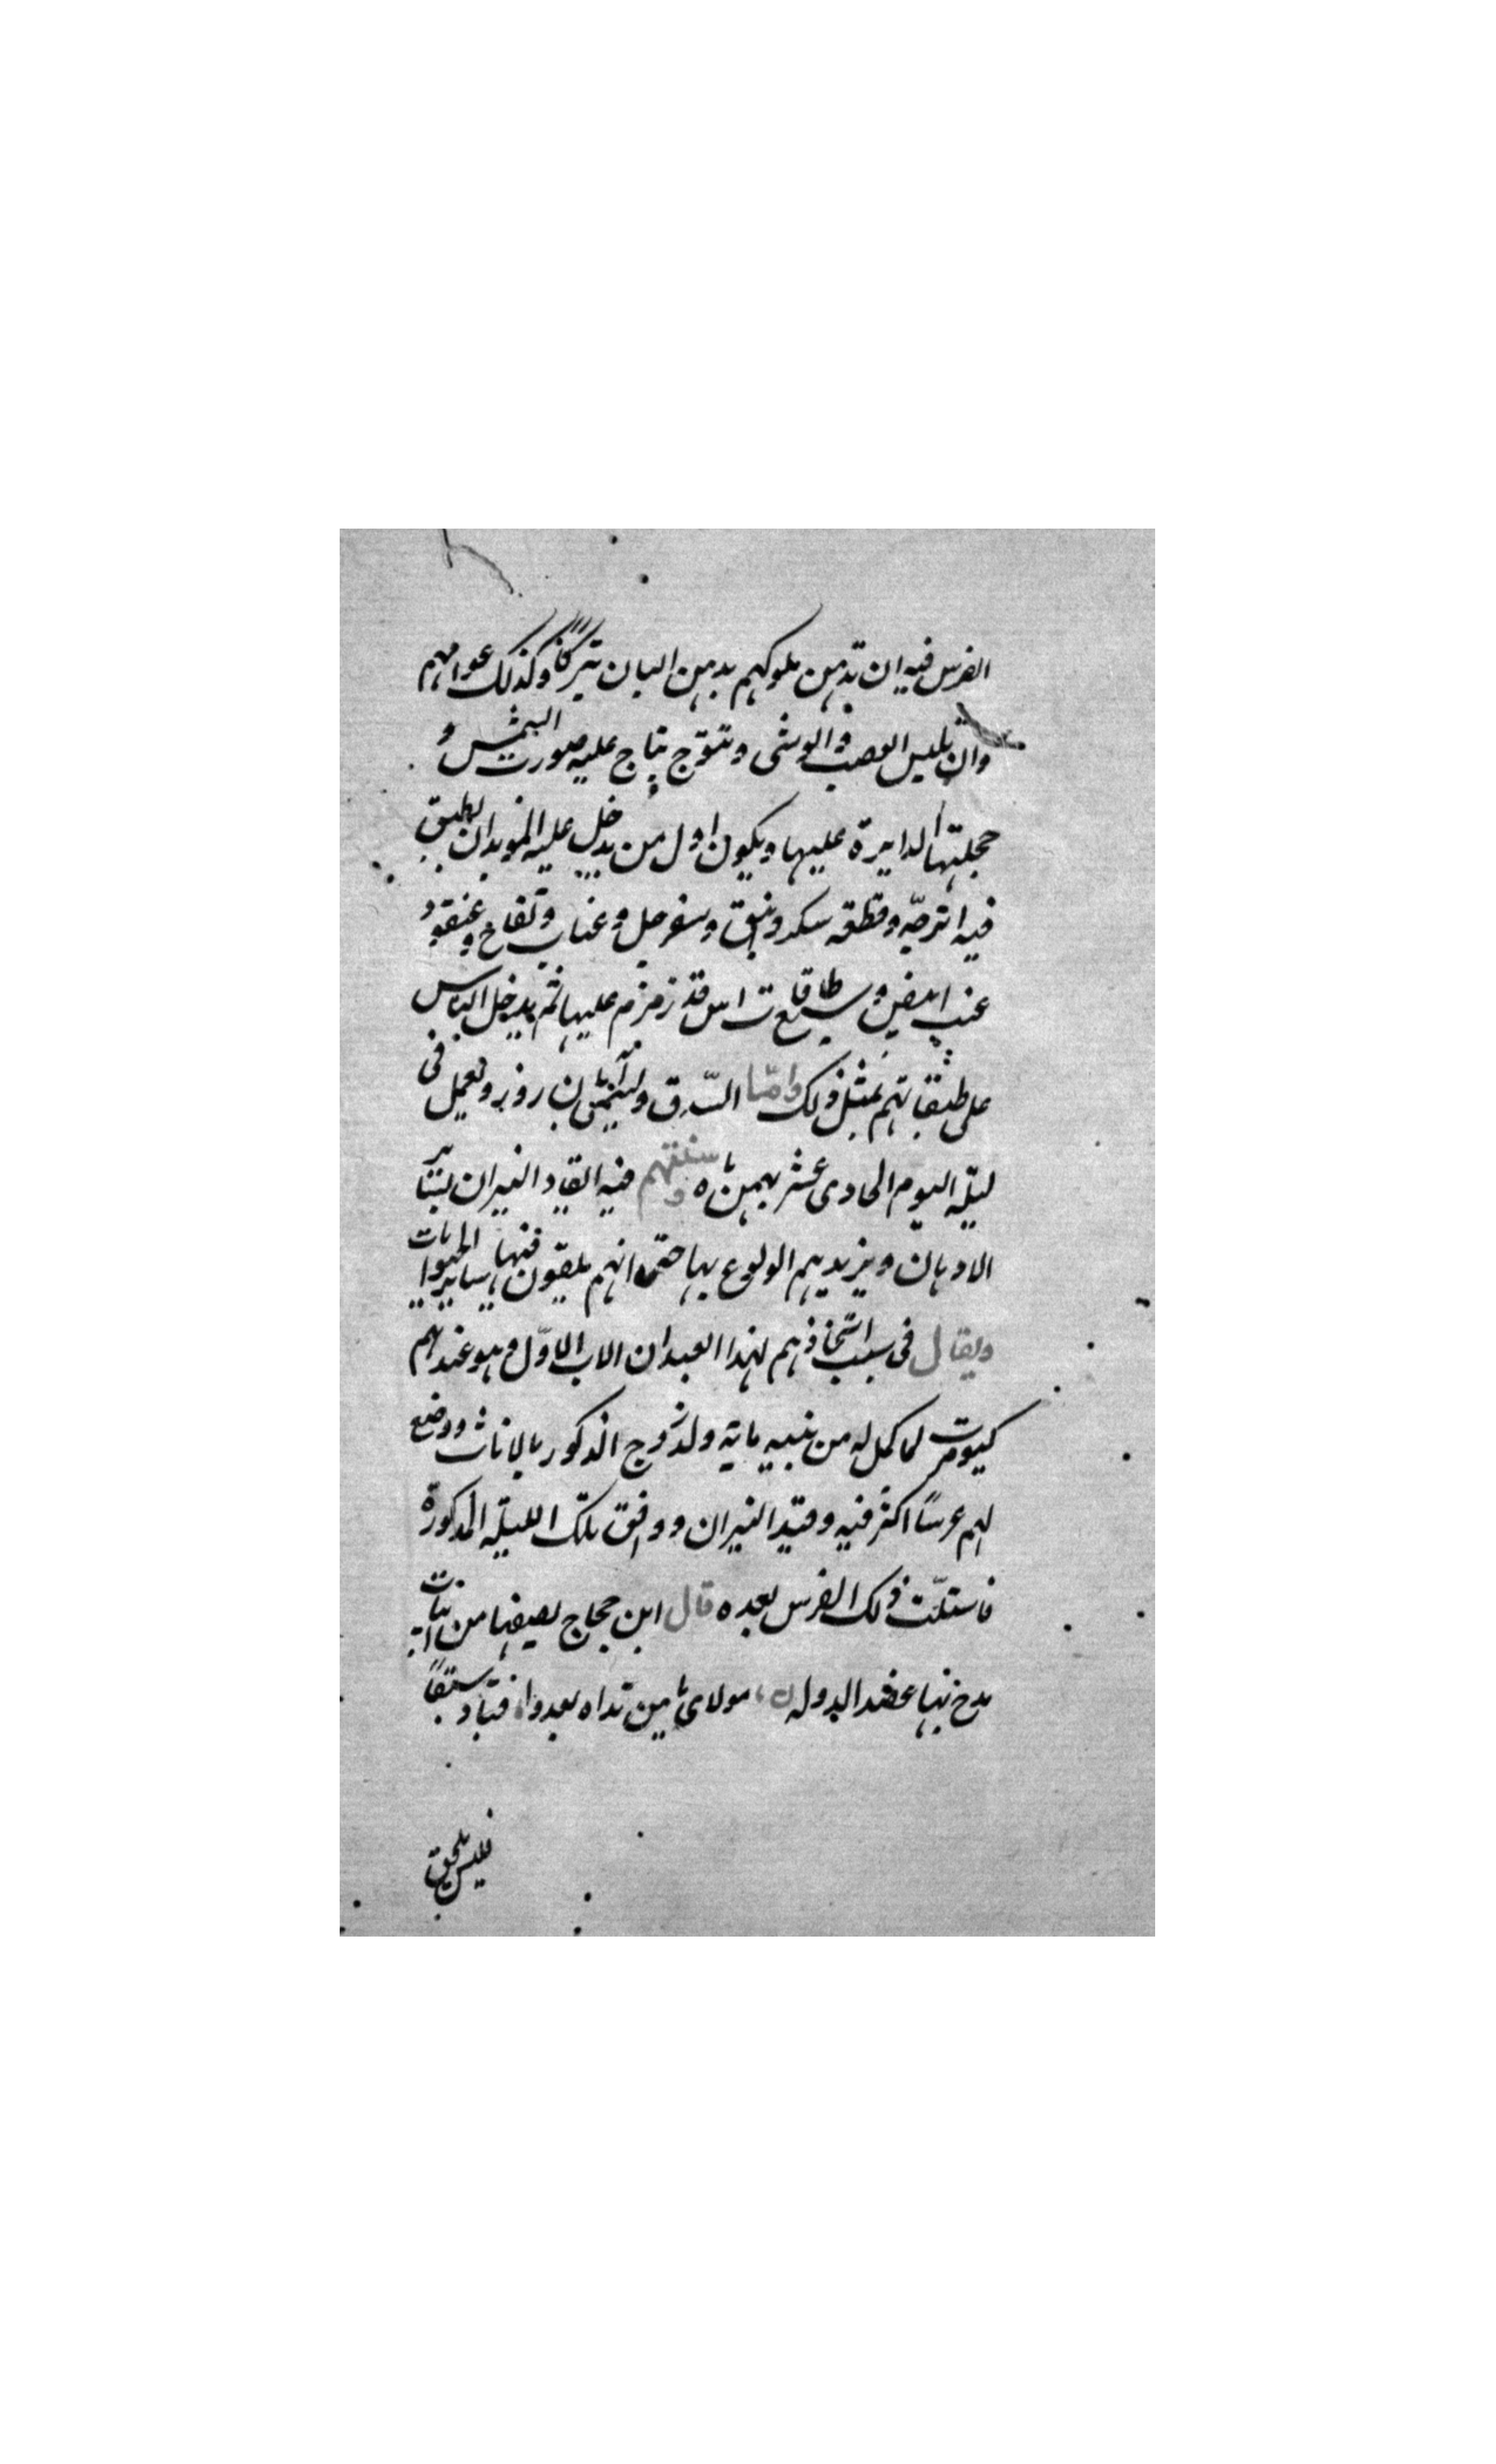 الفرس فيه ان تدهن ملوكهم بدهن البان تبركا وكذلك عوامهم
وان يلبس القصب والوشى وتتوج بتاج عليه صورت الشمس و
حجلتها الدايرة عليها ويكون اول من يدخل عليه الموبدان بطبق
فيه اترجّه وقطعه سكر ونبق وسفرجل وعناب وتفاح وعنقود
عنب ابيض وسبع طاقات اس قد زمزم عليها ثم يدخل الناس
على طبقاتهم بمثل ذلك وامّا السّذق ابان روز ويعمل فى
ليلة اليوم الحادى عشر بهمن ماه وسنتهم فيه ايقاد النيران بساير
الادهان ويزيد بهم الولوع بها حتى انهم يلقون فيها ساير الحيوانات
ويقال فى سبب اتخاذهم لهذا العيد ان الاب الاوّل وهو عندهم
كيومرت لما كمل له من بنيه ماية ولد زوج الذكور بالاناث ووضع
لهم عرسًا اكثر فيه وقيد النيران ووافق تلك الليلة المذكورة
فاستنّت ذلك الفرس بعده قال ابن حجاج يصفها من ابيات
مدح بها عضد الدولة مولاى يامن نداه يعدو ففات سبقا
فليس يلحق